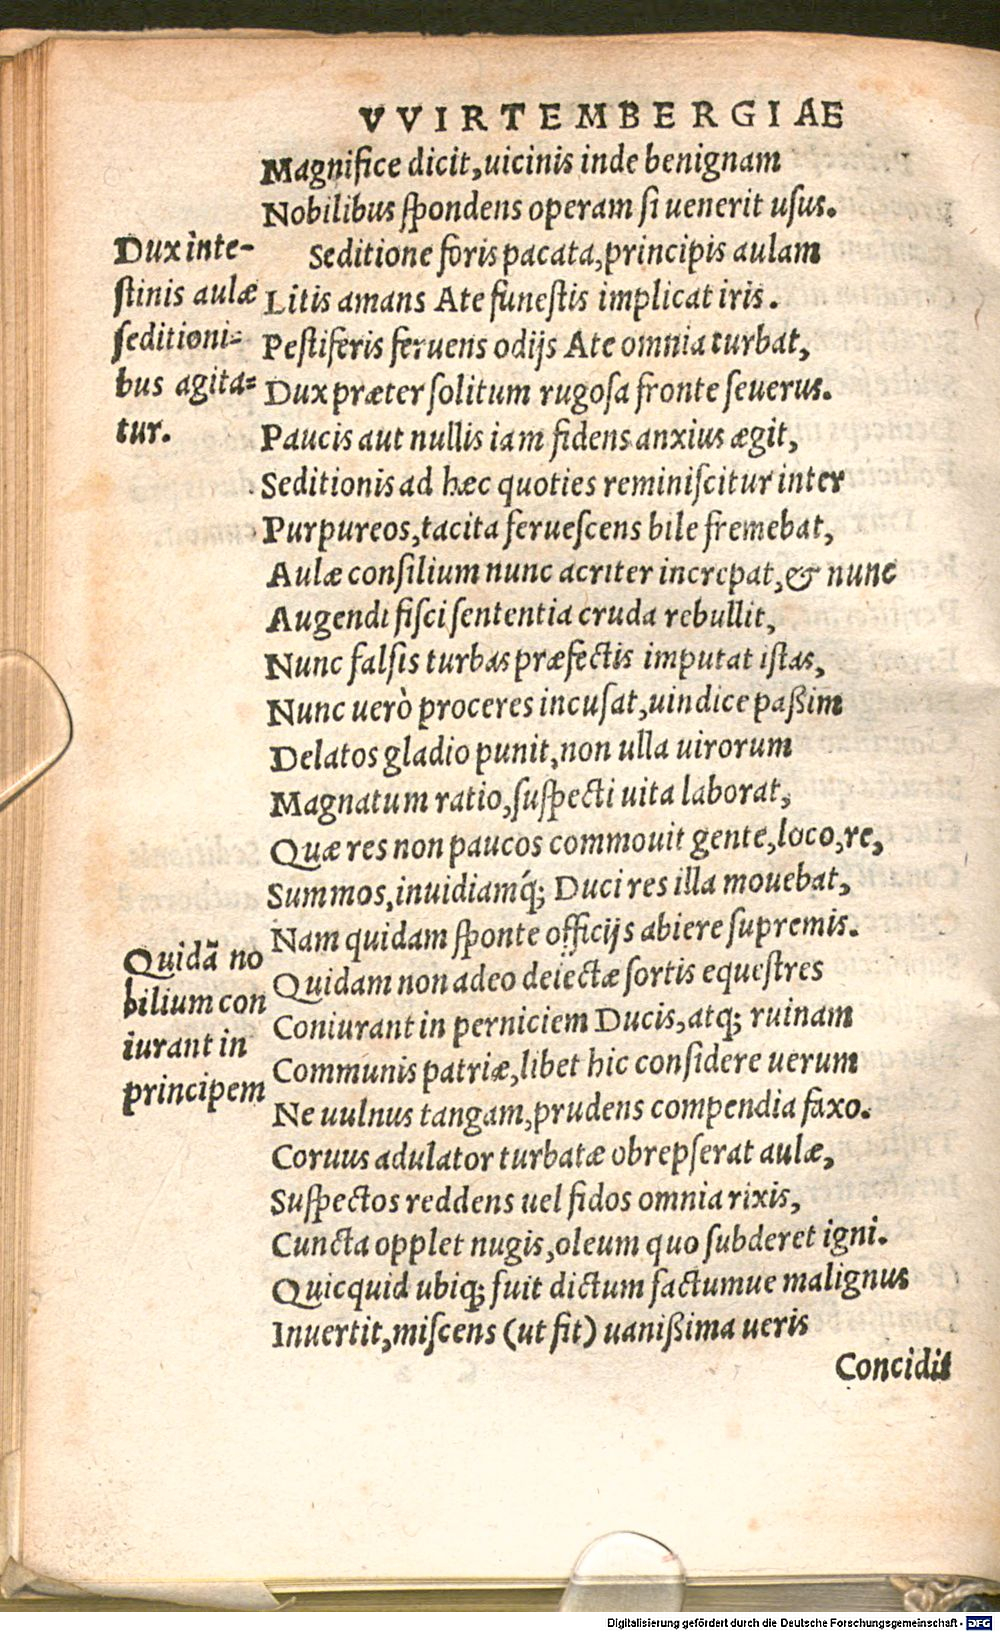 VVIRTEMBERGIAE
Magnifice dicit, uicinis inde benignam
Nobilibus spondens operam si uenerit usus.
Dux inte-
stinis aulæ
seditioni-
bus agita-
tur.
Seditione foris pacata, principis aulam
Litis amans Ate funestis implicat iris.
Pestiferis feruens odijs Ate omnia turbat,
Dux præter solitum rugosa fronte seuerus.
Paucis aut nullis iam fidens anxius ægit,
Seditionis ad hæc quoties reminiscitur inter
Purpureos, tacita feruescens bile fremebat,
Aulæ consilium nunc acriter increpat, & nunc
Augendi fisci sententia cruda rebullit,
Nunc falsis turbas præfectis imputat istas,
Nunc uerò proceres incusat, uindice paßim
Delatos gladio punit, non ulla uirorum
Magnatum ratio, suspecti uita laborat,
Quæ res non paucos commouit gente, loco, re,
Summos, inuidiamq́; Duci res illa mouebat,
Nam quidam sponte officijs abiere supremis.
Quidã no
bilium con
iurant in
principem
Quidam non adeo deiectæ sortis equestres
Coniurant in perniciem Ducis, atq; ruinam
Communis patriæ, libet hic considere uerum
Ne uulnus tangam, prudens compendia faxo.
Coruus adulator turbatæ obrepserat aulæ,
Suspectos reddens uel fidos omnia rixis,
Cuncta opplet nugis, oleum quo subderet igni.
Quicquid ubiq; fuit dictum factumue malignus
Inuertit, miscens (ut fit) uanißima ueris
Concidit
Digitalisierung gefördert durch die Deutsche Forschungsgemeinschaft - DFG